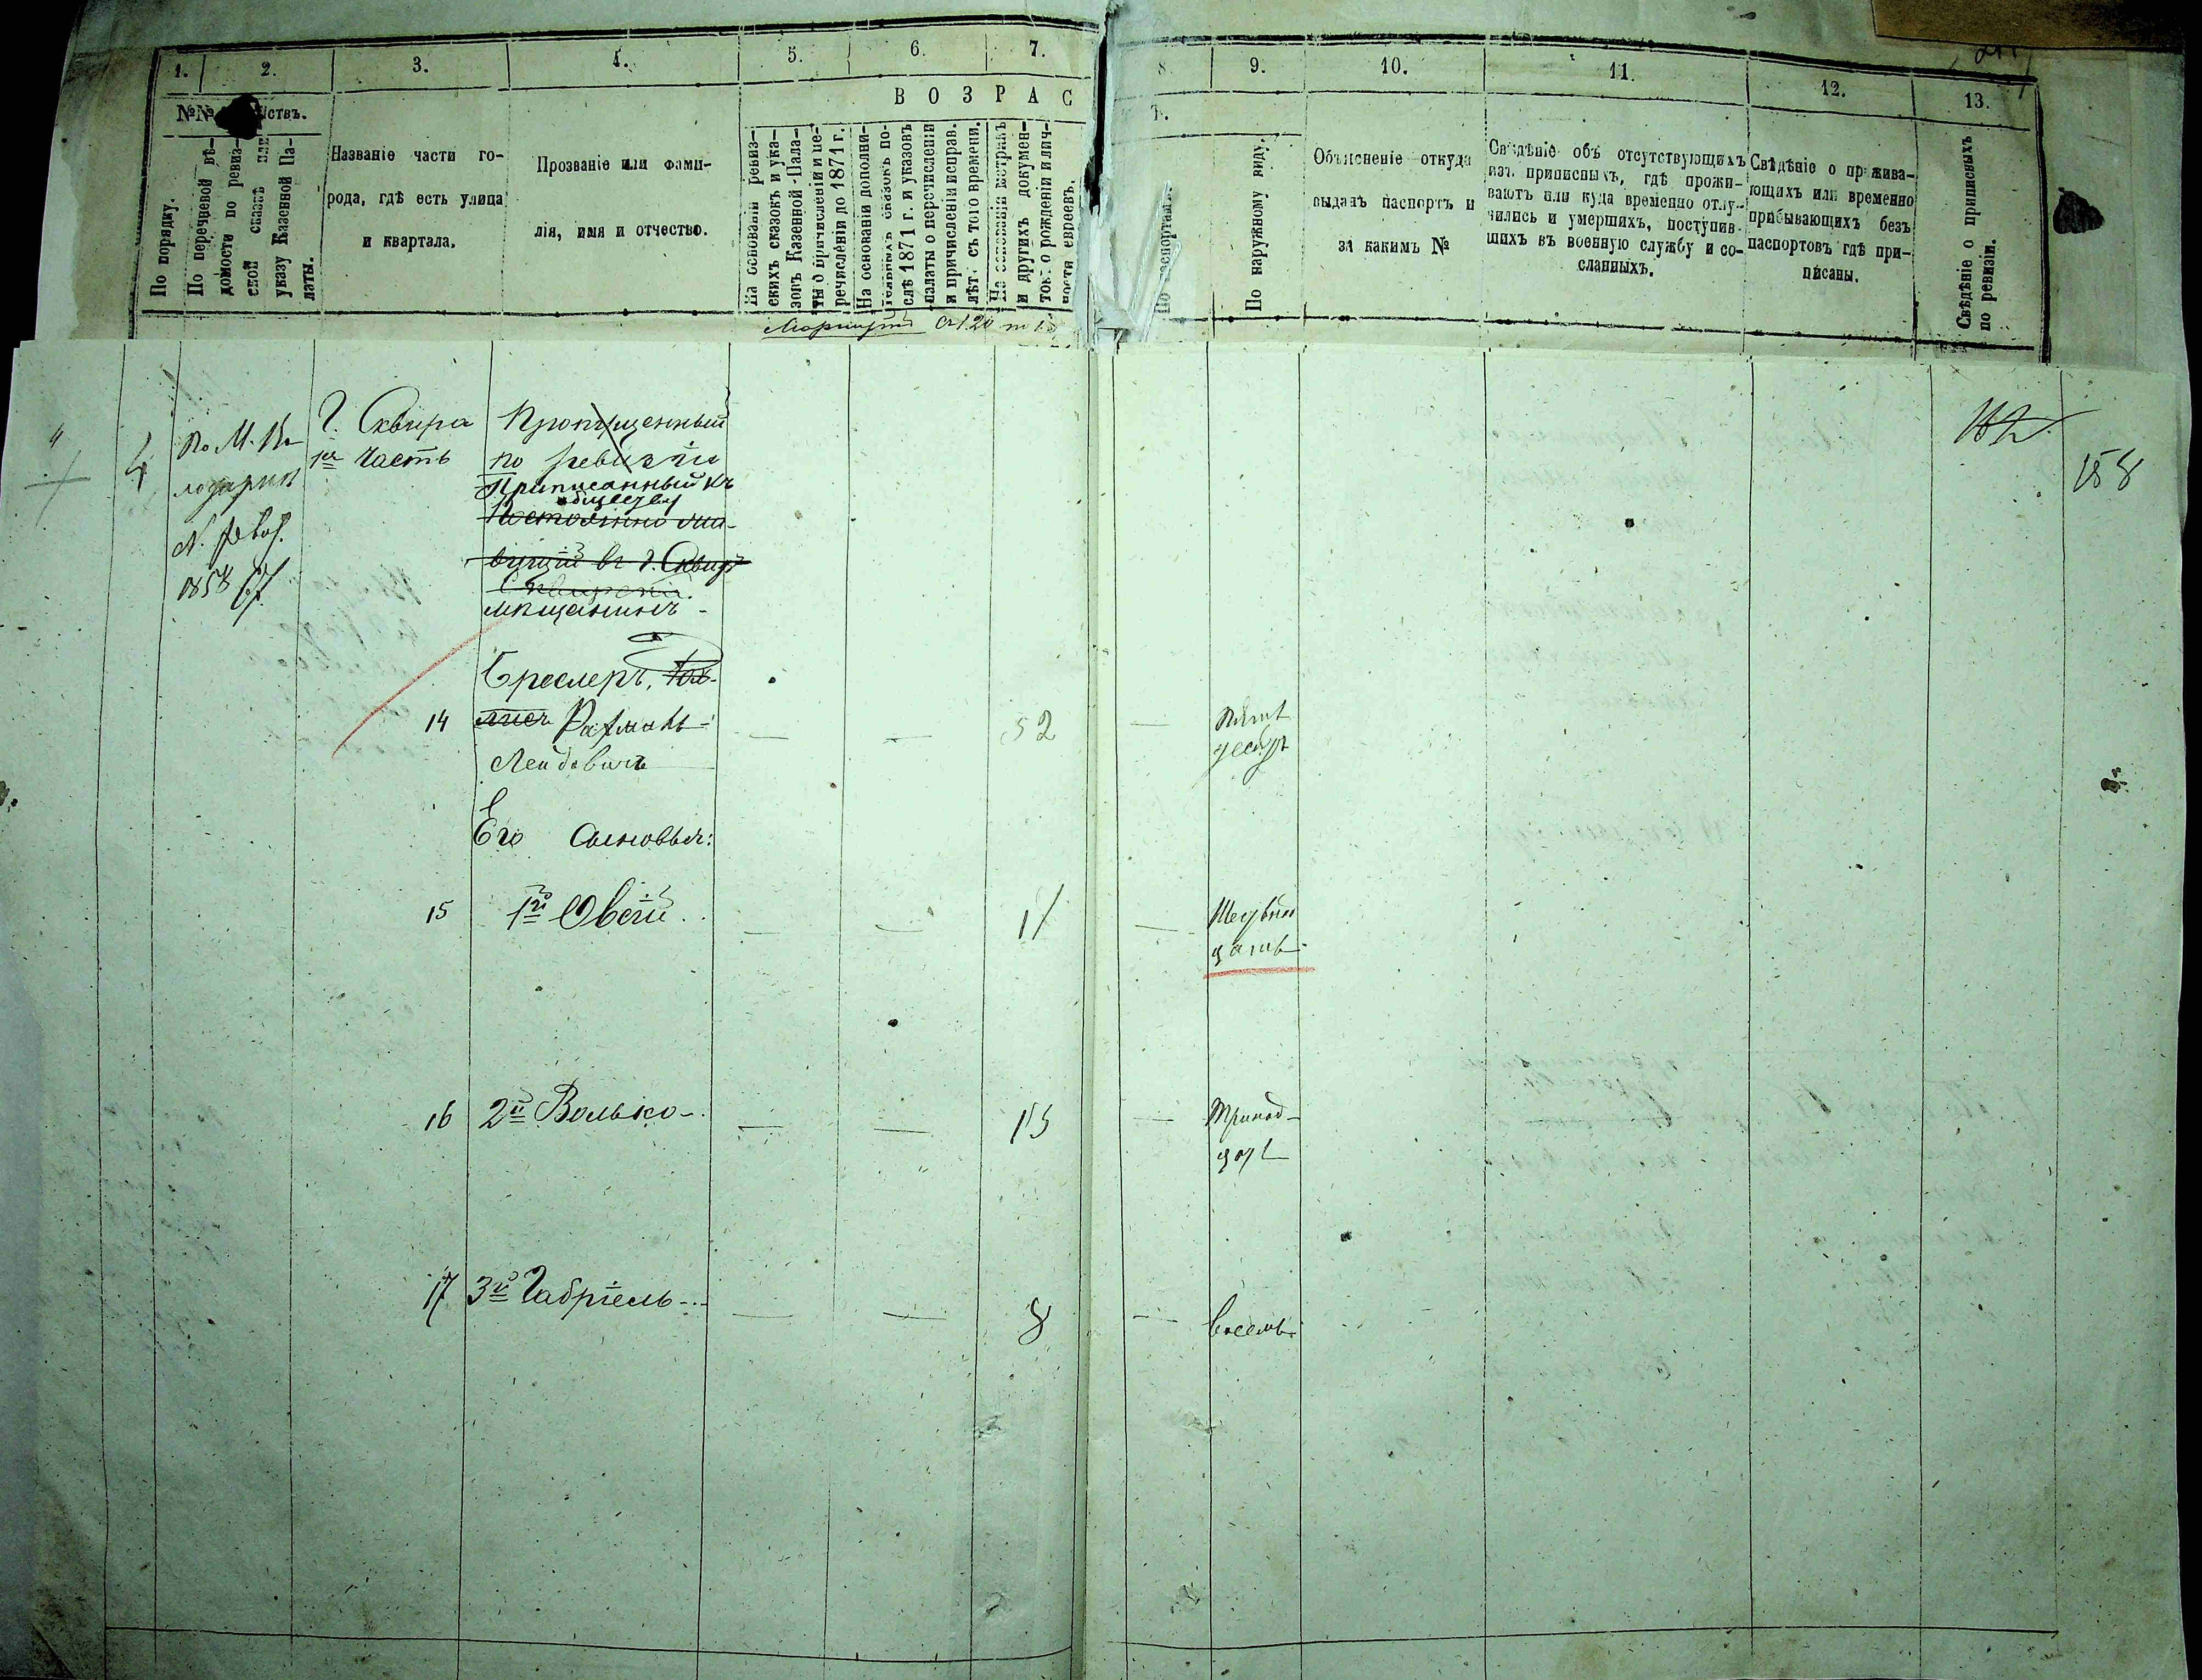 1. 2. 3. 4. 5. 6. 7. 8. 9. 10. 11. 12. 13.
№№ ствъ.
В О З Р А С Т.
По порядку.
По перечневой вѣ-
домости по ревиз-
ской сказкѣ или
указу Казенной Па-
латы.
Названіе части го-
рода, гдѣ есть улица
и квартала.
Прозваніе или фами-
лія, имя и отчество.
На основаніи ревиз-
скихъ сказокъ и ука-
зовъ Казенной Пала-
ты о причисленіи и пе-
речисленіи до 1871 г.
На основаніи дополни-
тельныхъ сказокъ по-
слѣ 1871 г. и указовъ
палаты о перечисленіи
и причисленіи исправ.
лѣтъ съ того времени.
На основаніи метрикъ
и другихъ докумен-
товъ о рожденіи и лич-
ности евреевъ.
По паспортамъ.
По наружному виду.
Объясненіе откуда
выданъ паспортъ и
за какимъ №
Свѣдѣніе объ отсутствующихъ
изъ приписныхъ, гдѣ прожи-
ваютъ или куда временно отлу-
чились и умершихъ, поступив-
шихъ въ военную службу и со-
сланныхъ.
Свѣдѣніе о прожива-
ющихъ или временно
прибывающихъ безъ
паспортовъ гдѣ при-
писаны.
Свѣдѣніе о приписныхъ
по ревизіи.
4
По М. Во-
лодарки
1858
Г. Сквира
1я часть
Пропущенный
по ревизіи
Приписанный къ
обществу
Постоянно жи-
вущій въ г. Сквирѣ
мѣщанинъ
Бреслеръ,
14 Рахмань 52
Лейбовичъ
Пять
десятъ
Его сыновья:
15 1й Овсій 17
Шестьнад
цать
16 2й Волько 13
Тринад-
цать
17 3й Габріель 8 восемь
158